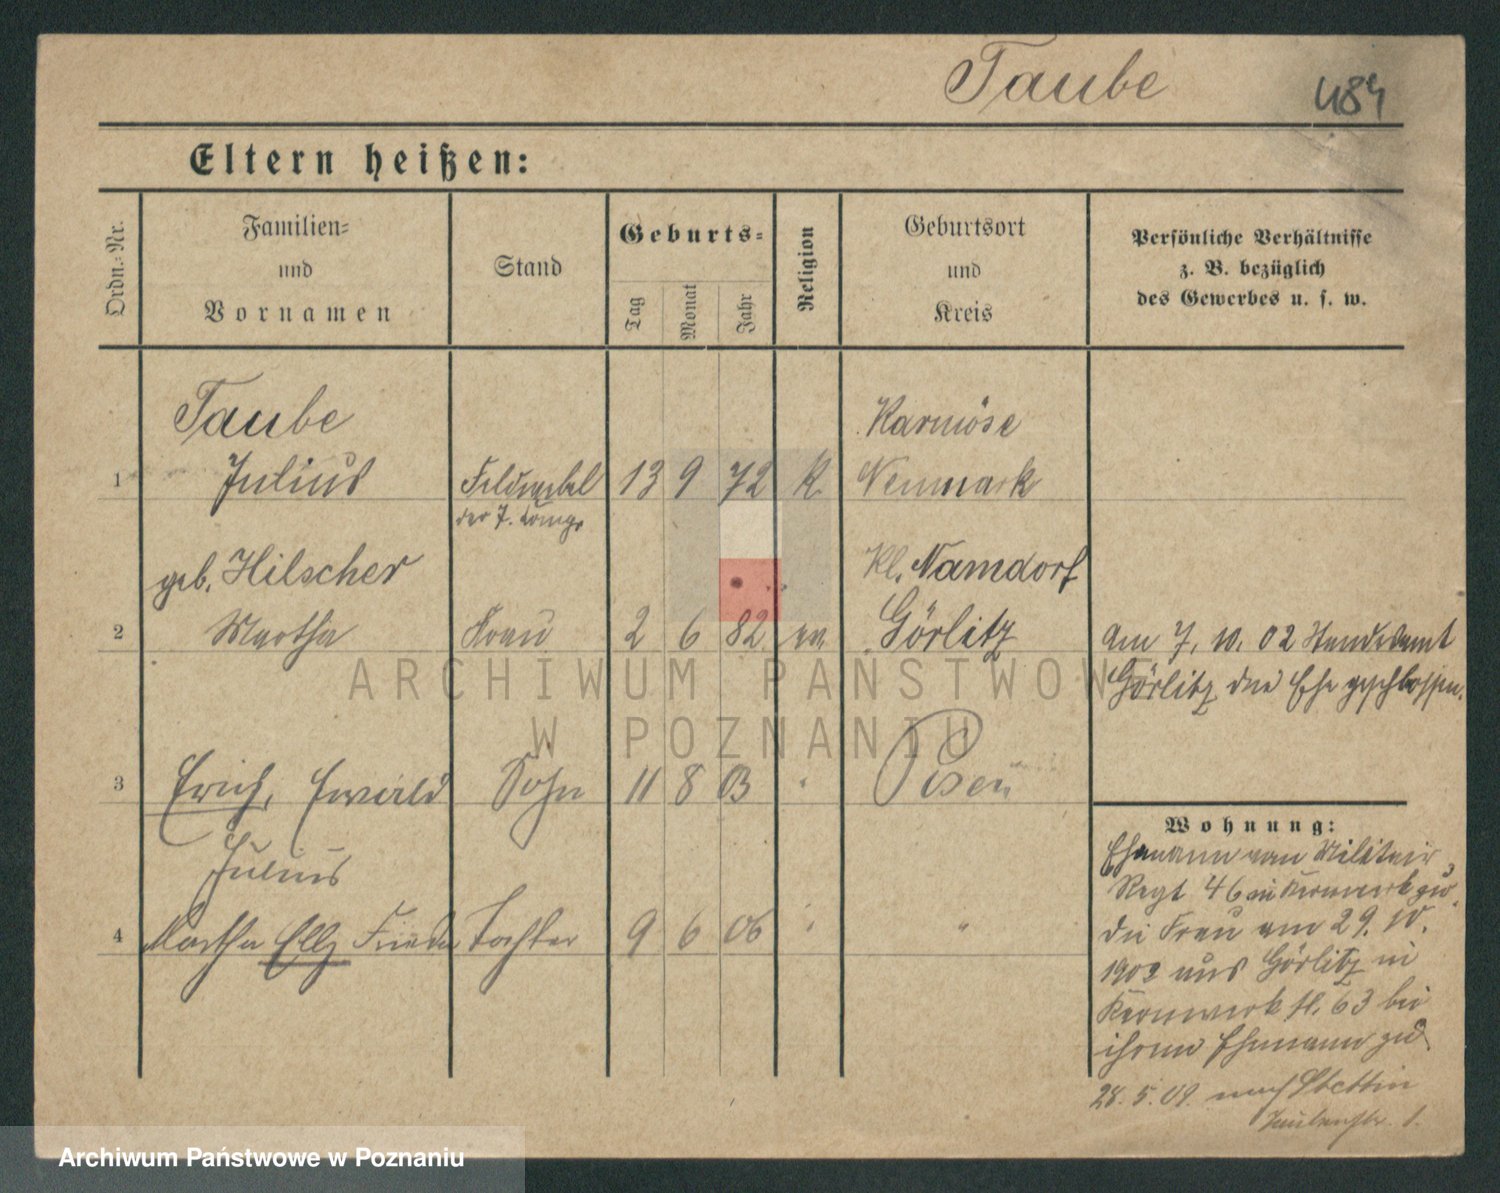 Taube
484
Eltern heißen:
Ordn.-Nr.
Familien-
und
Vornamen
Stand
Geburts-
Tag
Monat
Jahr
Religion
Geburtsort
und
Kreis
Persönliche Verhältnisse
z. B. bezüglich
des Gewerbes u. s. w.
Taube
Karmöse
1 Julius Feldwebel 13 9 72 K. Neumark
der 7. Komp.
geb. Hilscher
Kl. Namdorf
2 Martha Frau 2 6 82 ev. Görlitz
am 7. 10. 02 Standesamt
Görlitz die Ehe geschlossen.
3 Erich, Ewald Sohn 11 8 03 " Posen
Julius
4 Martha Elly Frieda Tochter 9 6 06 " "
Wohnung:
Ehemann vom Militair
Regt 46 in Kernwerk zu.
die Frau am 29. 10.
1902 aus Görlitz in
Kernwerk St. 63 bei
ihrem Ehemann zu
28. 5. 09. nach Stettin
1.
ARCHIWUM PAŃSTWOWE
W POZNANIU
Archiwum Państwowe w Poznaniu